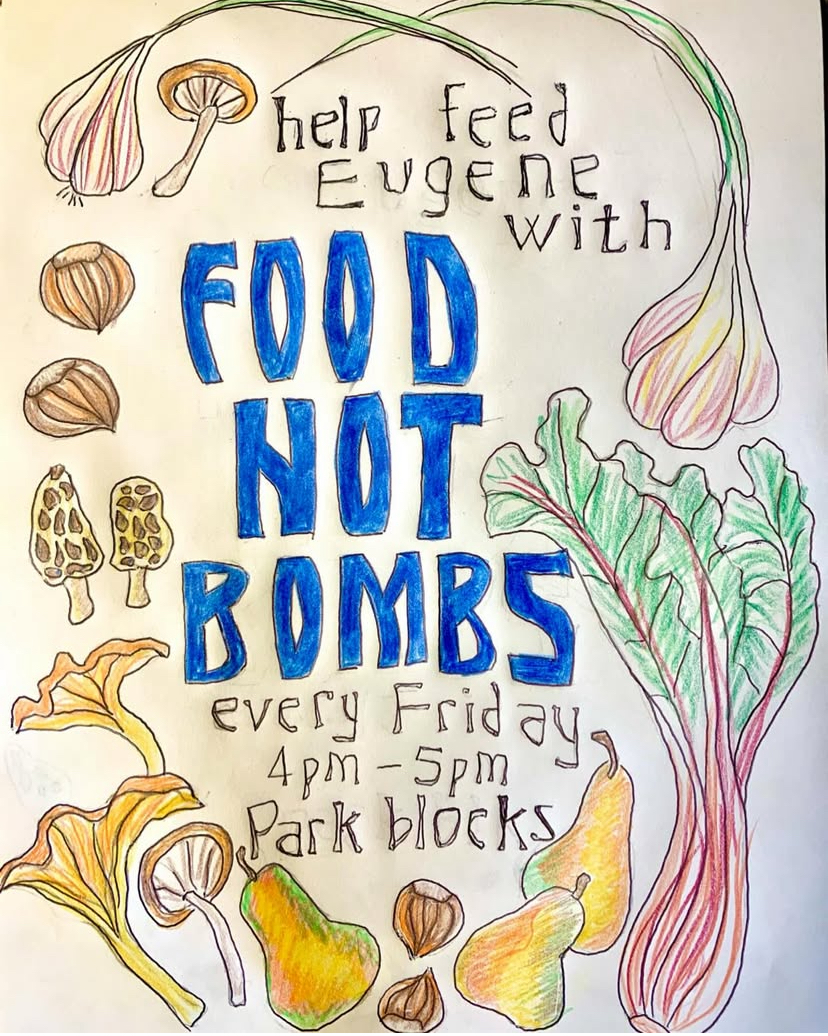 help feed
Eugene
with
FOOD
NOT
BOMBS
every Friday
4pm - 5pm
Park blocks